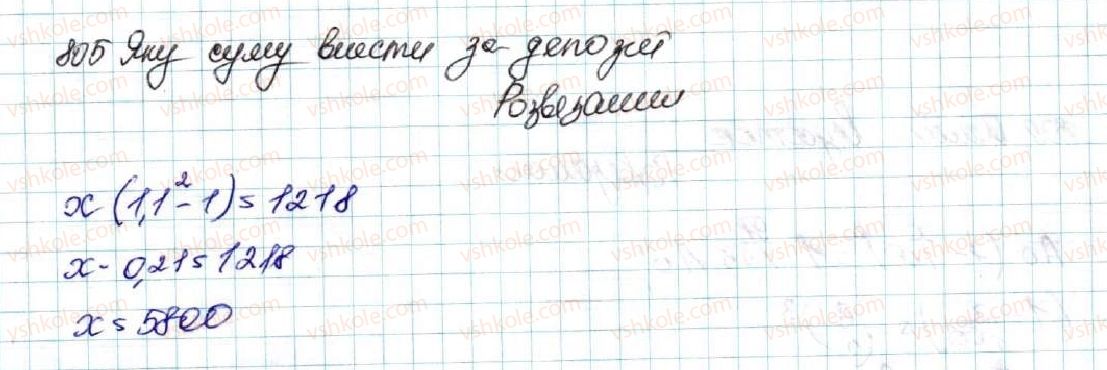 805 Яку суму внести за депозит
Розвязання
x (1,1² - 1) = 1218
x - 0,21 = 1218
x = 5800